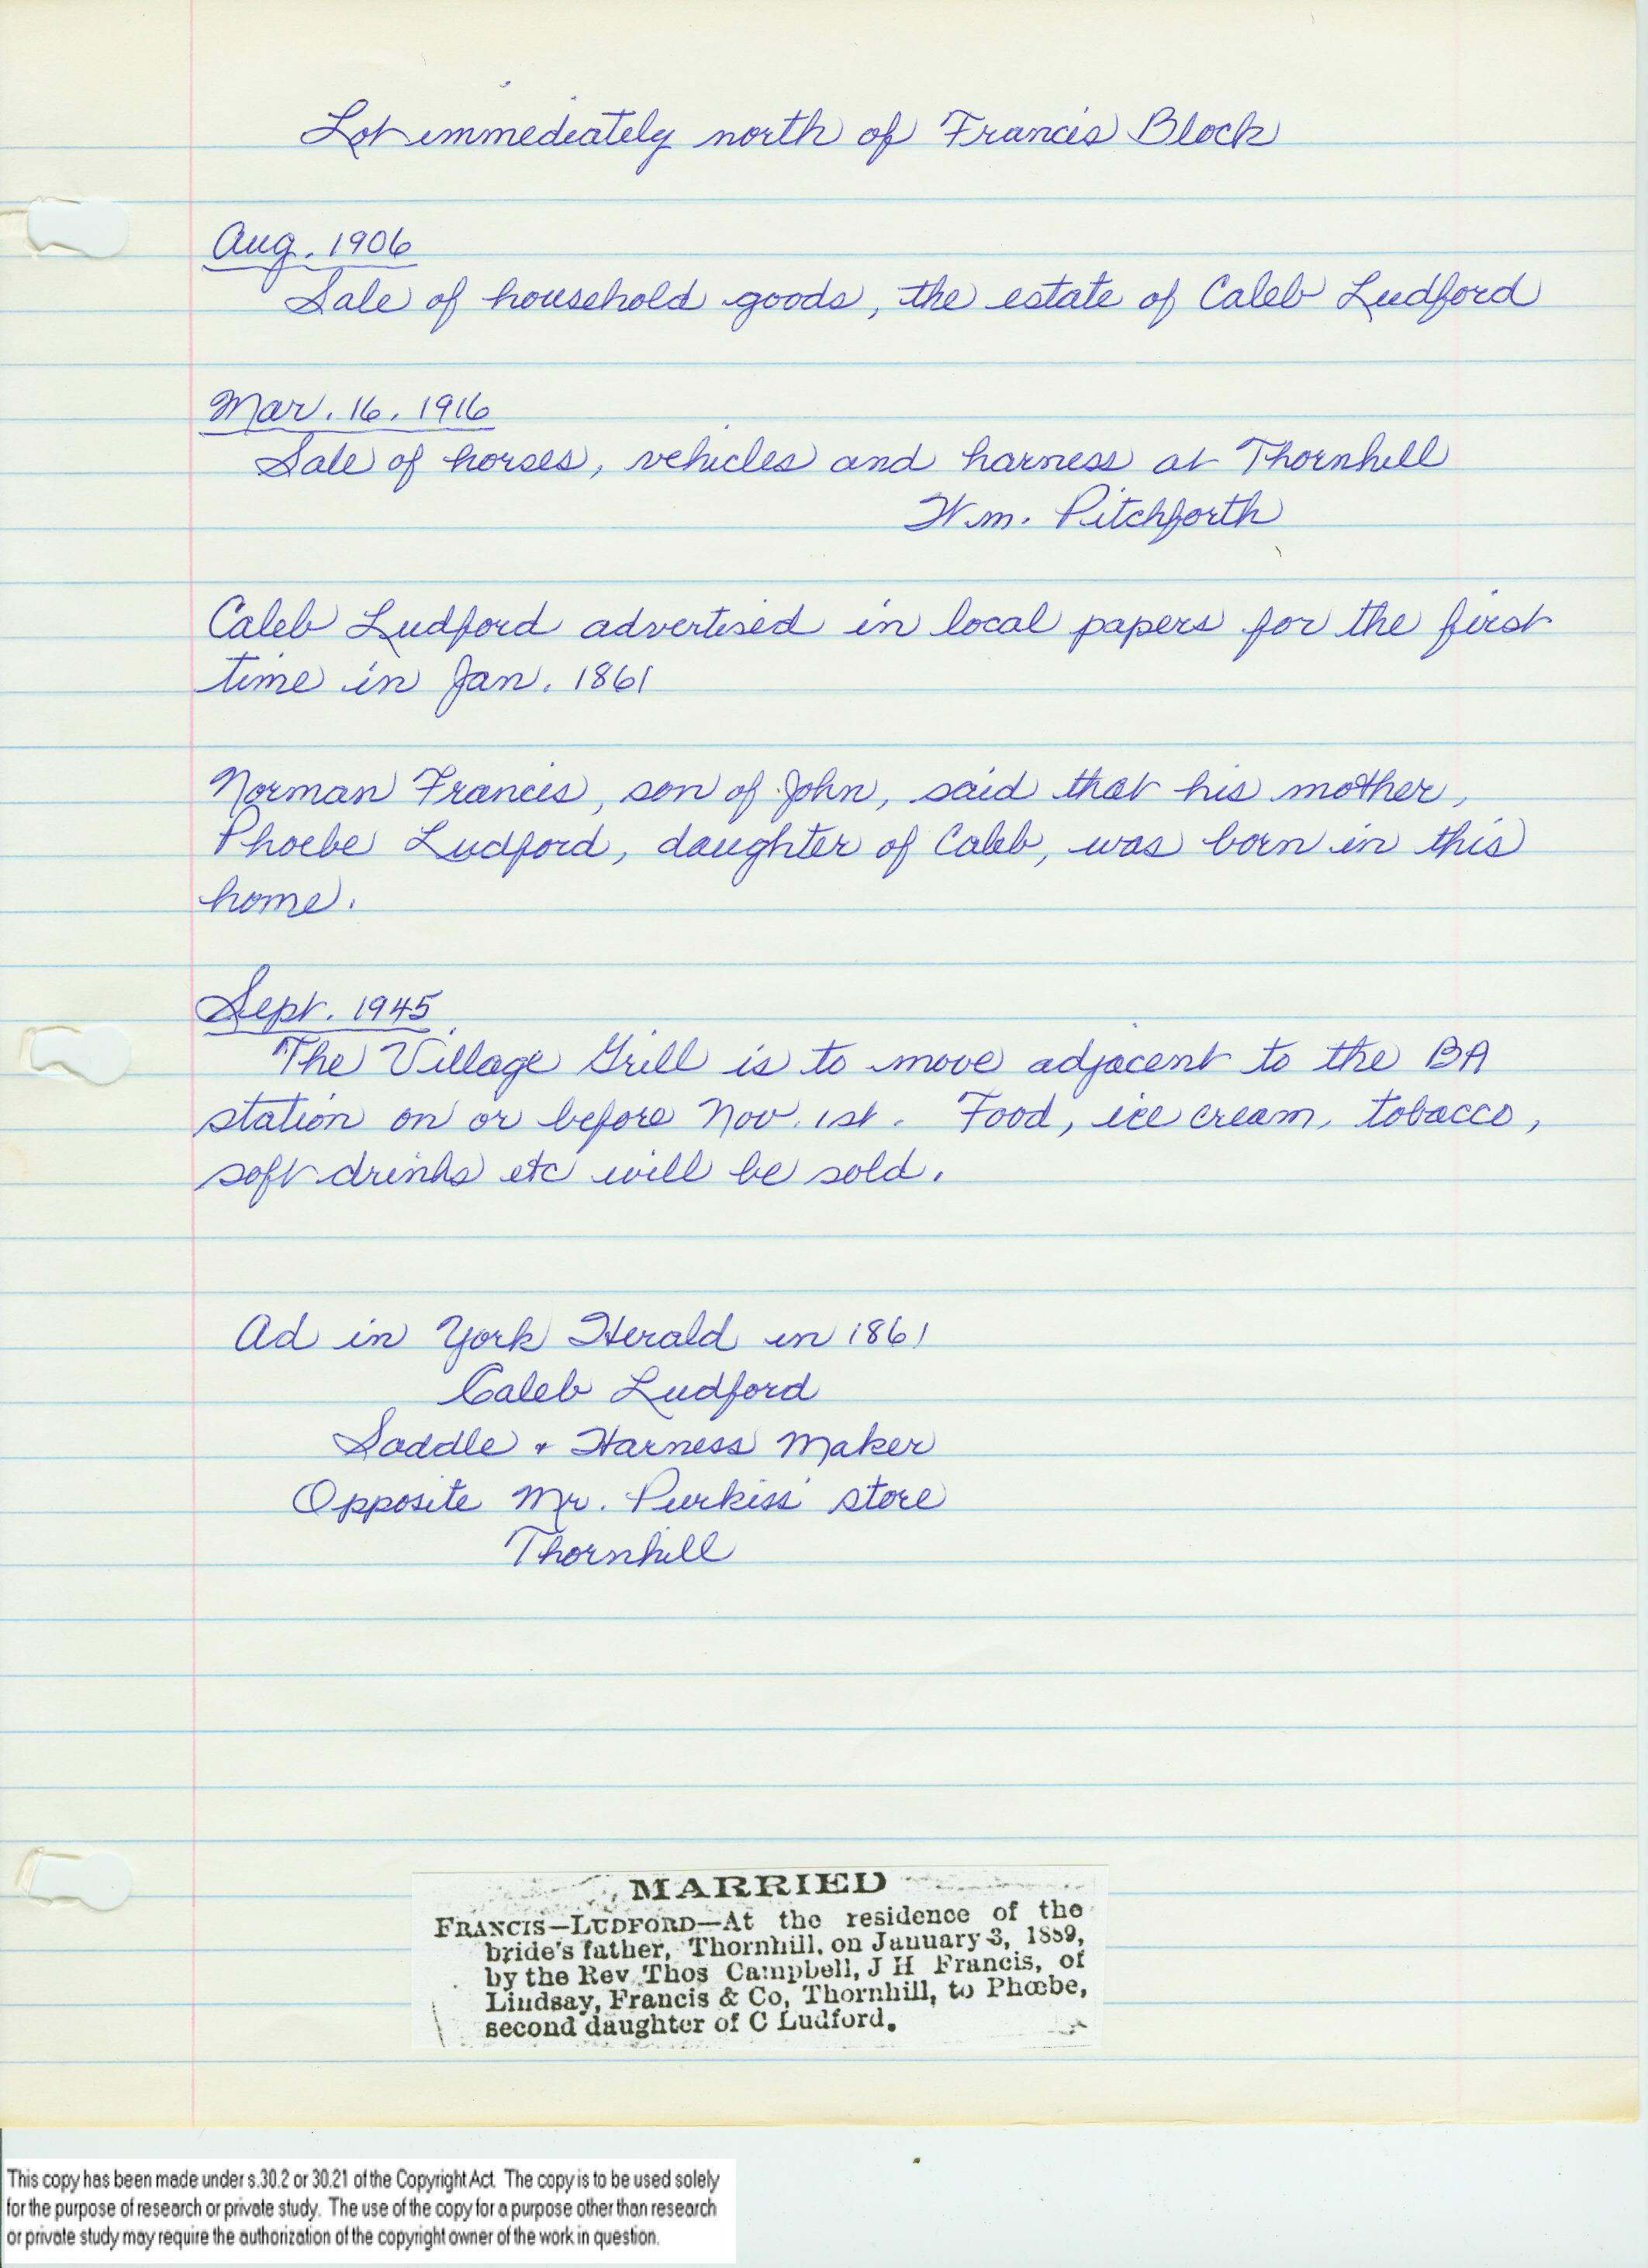 Lot immediately north of Francis Block
Aug. 1906
Sale of household goods, the estate of Caleb Ludford
Mar. 16. 1916
Sale of horses, vehicles and harness at Thornhill
Wm. Pitchforth
Caleb Ludford advertised in local papers for the first
time in Jan. 1861
Norman Francis, son of John, said that his mother,
Phoebe Ludford, daughter of Caleb, was born in this
home.
Sept. 1945
The Village Grill is to move adjacent to the BA
station on or before Nov. 1st. Food, ice cream, tobacco,
soft drinks etc will be sold.
Ad in York Herald in 1861
Caleb Ludford
Saddle + Harness Maker
Opposite Mr. Purkiss' store
Thornhill
MARRIED
FRANCIS—LUDFORD—At the residence of the
bride's father, Thornhill, on January 3, 1889,
by the Rev Thos Campbell, J H Francis, of
Lindsay, Francis & Co, Thornhill, to Phœbe,
second daughter of C Ludford.
This copy has been made under s.30.2 or 30.21 of the Copyright Act. The copy is to be used solely
for the purpose of research or private study. The use of the copy for a purpose other than research
or private study may require the authorization of the copyright owner of the work in question.